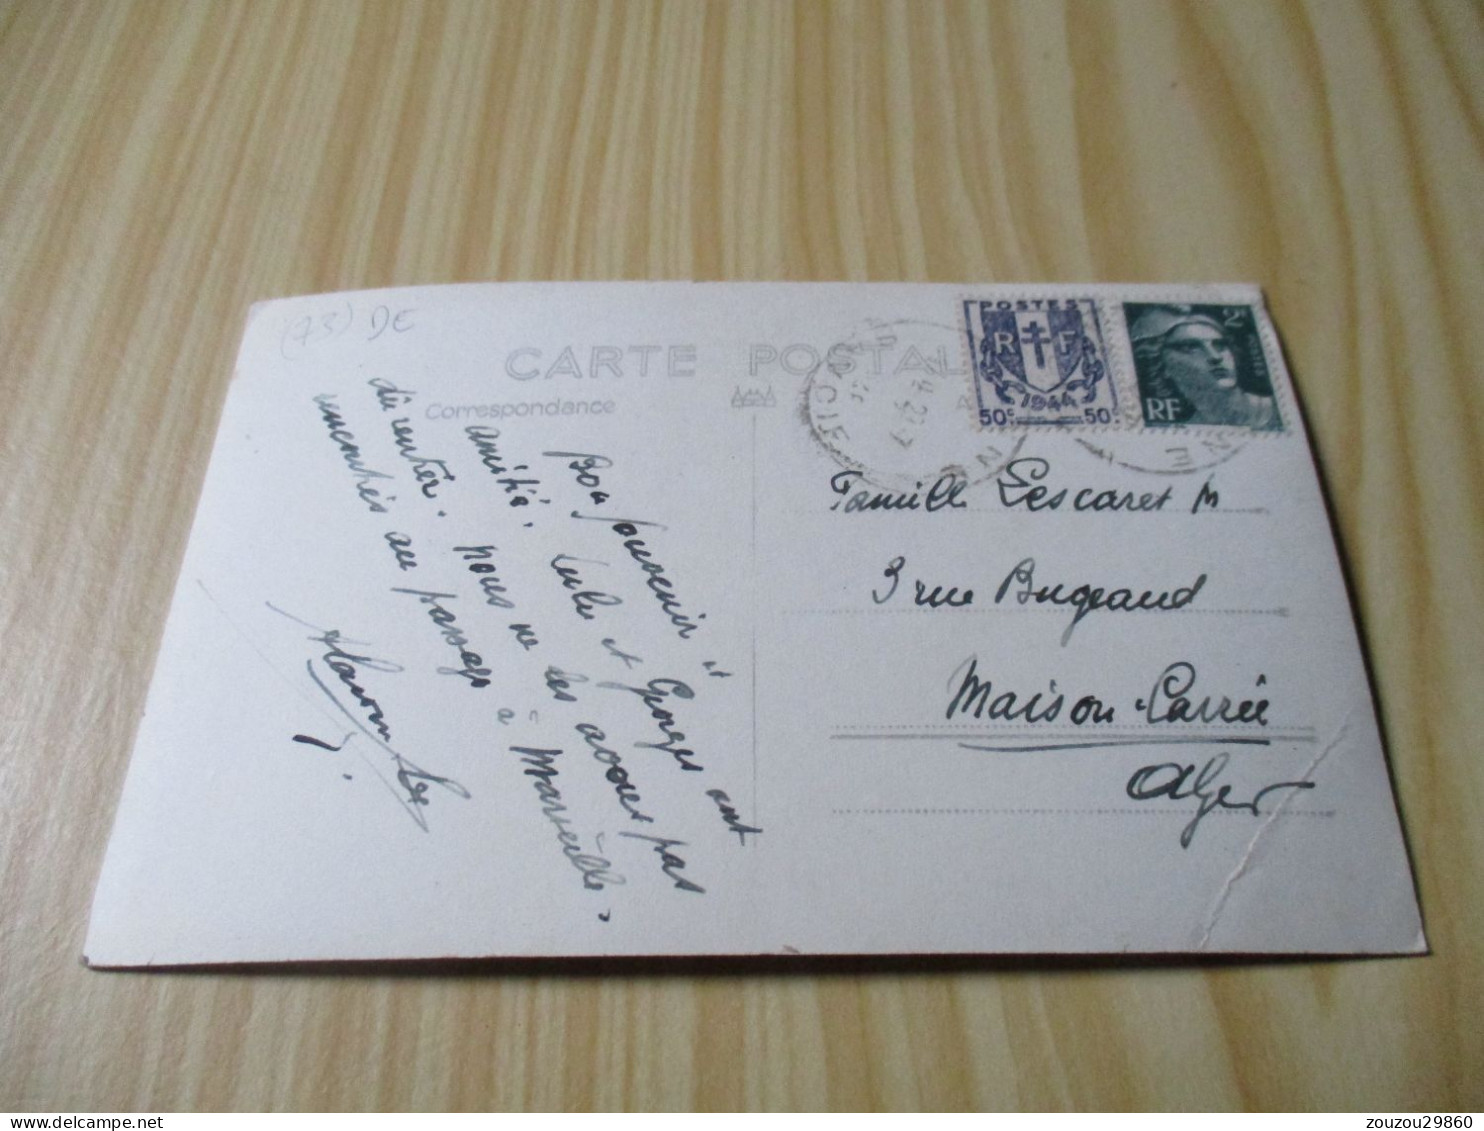 (73) DE
CARTE POSTALE
Correspondance
Bon souvenir et
amitié. Lulu et Georges ont
dû rentrer. Nous ne les avons pas
rencontrés au passage à Marseille.
POSTES
RF
1944
50c 50c
2F
RF
Famille Lescaret M
3 rue Bugeaud
Maison-Carrée
Alger
zouzou29860